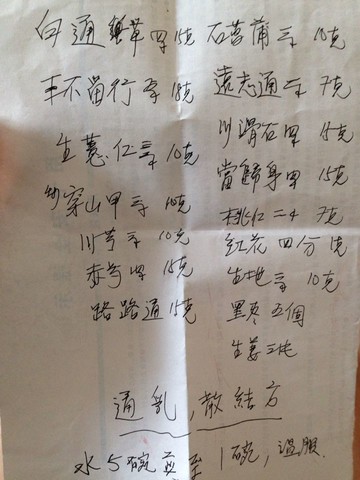 白通草四 15克
王不留行 18克
生薏仁三 10克
炒穿山甲三 10克
川芎三 10克
赤芍四 15克
路路通 15克
石菖蒲三 10克
遠志通二 7克
川滑石四 15克
當歸身四 15克
桃仁二 7克
紅花四分 1克
生地三 10克
黑枣五個
生姜三片
通乳,散結方
水5碗煎至1碗,溫服.